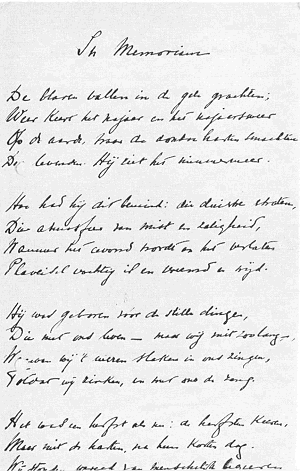 In Memoriam
De blaren vallen in de gele grachten;
Weer keert het najaar en het najaarsweer
Op de aarde, waar de donkre harten smachten
Der levenden. Hij ziet het nimmermeer.
Hoe had hij dit bemind: die duistre straten,
Die atmosfeer van mist en zaligheid,
Wanneer het avond wordt en het verlaten
Plaveisel vochtig is en vreemd en wijd.
Hij was geboren voor de stille dingen,
Die met ons leven — maar wij niet zoo lang —,
wij 't wezen slaken in ons zingen,
Totdat wij zinken, en met ons de zang.
Het was een herfst als nu: de herfsten keeren,
Maar niet de harten, na hun korten dag.
Wij stonden, wreed van menschelijk begeeren